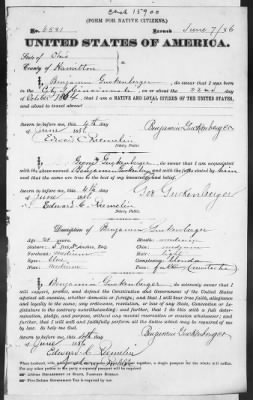 (FORM FOR NATIVE CITIZEN.)
No. 5581 Issued June 7/86
UNITED STATES OF AMERICA.
State of Ohio
County of Hamilton
I, Benjamin Guckenberger, do swear that I was born
in the City of Cincinnati on or about the 22nd day
of October 1864; that I am a NATIVE AND LOYAL CITIZEN OF THE UNITED STATES,
and about to travel abroad.
Sworn to before me, this 4th day
of June 1886
Benjamin Guckenberger
Edward C. Kiemelin
Notary Public.
I, George Guckenberger, do swear that I am acquainted
with the above-named Benjamin Guckenberger, and with the facts stated by him
and that the same are true to the best of my knowledge and belief.
Sworn to before me, this 4th day
of June 1886
Geo Guckenberger
Edward C. Kiemelin
Notary Public.
Description of Benjamin Guckenberger
Age: 21 years
Mouth: medium
Stature: 5 feet inches, Eng.
Chin:
Forehead: medium
Hair:
Eyes: Blue
Complexion: blonde
Nose: medium
Face: full
I, Benjamin Guckenberger, do solemnly swear that I
will support, protect, and defend the Constitution and Government of the United States
against all enemies, whether domestic or foreign; and that I will bear true faith, allegiance
and loyalty to the same, any ordinance, resolution, or law of any State, Convention or Legislature
to the contrary notwithstanding; and further, that I do this with a full determination,
pledge, and purpose, without any mental reservation or evasion whatsoever; and
further, that I will well and faithfully perform all the duties which may be required of me
by law. So help me God.
Sworn to before me, this 4th day
of June 1886
Benjamin Guckenberger
Edward C. Kiemelin
Notary Public.